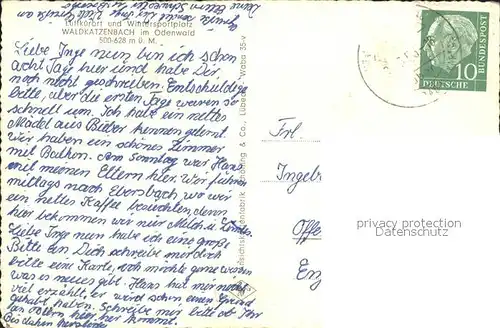 Luftkurort und Wintersportplatz
WALDKATZENBACH im Odenwald
500-628 m ü. M.
Liebe Inge nun bin ich schon
acht Tag hier und habe Dir
noch nicht geschrieben. Entschuldige
bitte, aber die ersten Tage waren so
schnell um. Ich habe ein nettes
Mädel aus kennen gelernt.
wir haben ein schönes Zimmer
mit Balkon. Am Sonntag war Hans
mit meinen Eltern hier. Wir fuhren
mittags nach Ebersbach, wo wir
ein nettes Kaffee besuchten, denn
hier bekommen wir nur Milch u.
Liebe Inge nun habe ich eine große
Bitte an Dich schreibe mir doch
bitte eine Karte, ich möchte gerne wissen
was es neues gibt. Hans hat mir nicht
viel erzählt, er wird schon einen Grund
gehabt haben. Schreibe mir bitte ob Ihr
Bis dahin
Ansichtskartenfabrik Schöning & Co., Lübeck
Waba 35-v
Frl.
Ingeb
Offe
Enz
10
DEUTSCHE
BUNDESPOST
privacy protection
Datenschutz